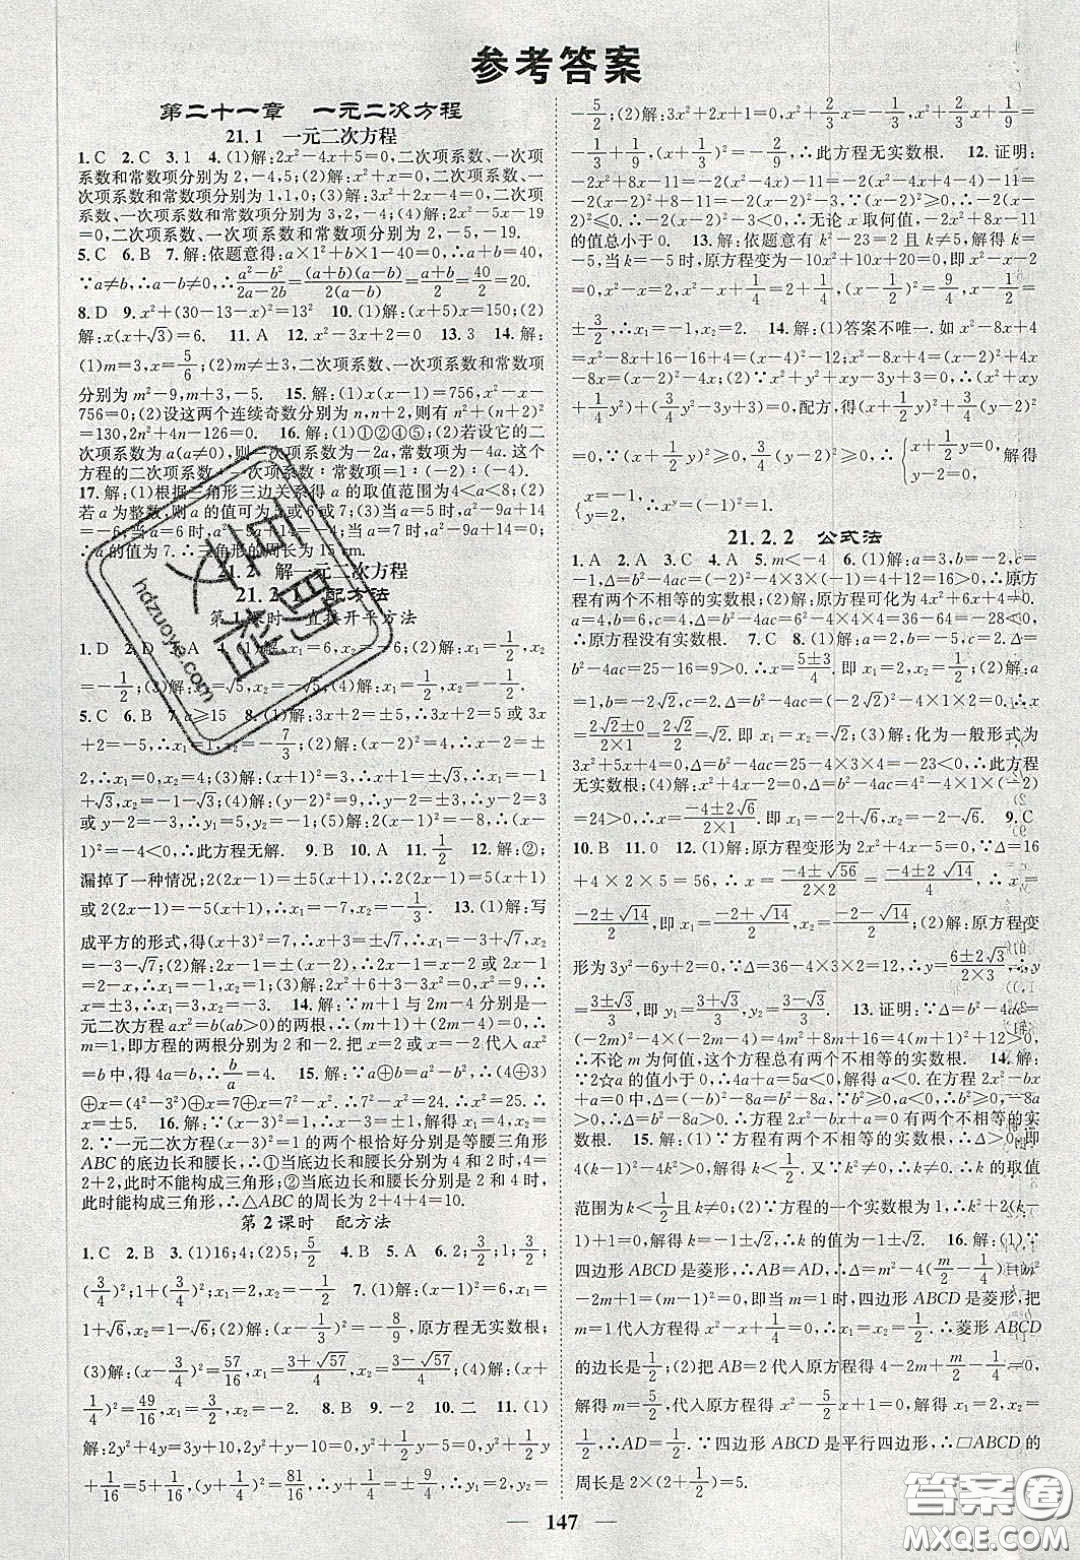 参考答案
第二十一章　一元二次方程
21.1　一元二次方程
1.C　2.C　3.1　4.(1)解:2x²-4x+5=0,二次项系数、一次项系
数和常数项分别为2,-4,5;(2)解:x²+x=0,二次项系数、一
次项系数和常数项分别为1,1,0;(3)解:3x²+2x-4=0,二次项
系数、一次项系数和常数项分别为3,2,-4;(4)解:x²-5x-19
=0,二次项系数、一次项系数和常数项分别为2,-5,-19.
5.C　6.B　7.解:依题意得:a×1²+b×1-40=0,∴a+b=40.
∵a≠b,∴a-b≠0,∴(a²-b²)/(2a-2b)=(a+b)(a-b)/2(a-b)=(a+b)/2=40/2=20.
8.D　9.x²+(30-13-x)²=13²　10.(1)解:x(x+5)=150;(2)
解:x(x+√3)=6.　11.A　12.x²-3x+2=0　13.3　14.解:
(1)m=3,x=5/6;(2)m≠±3,二次项系数、一次项系数和常数项
分别为m²-9,m+3,-5.　15.解:(1)x(x-1)=756,x²-x-
756=0;(2)设这两个连续奇数分别为n,n+2,则有n²+(n+2)²
=130,2n²+4n-126=0.　16.解:(1)①②④⑤;(2)若设它的二
次项系数为a(a≠0),则一次项系数为-2a,常数项为-4a.这个
方程的二次项系数∶一次项系数∶常数项=1∶(-2)∶(-4).
17.解:(1)根据三角形三边关系得a的取值范围为4<a<8;(2)
若a为整数,则a的值可为5或6或7;(3)当a=5时,a²-9a+14
=-6;当a=6时,a²-9a+14=-4;当a=7时,a²-9a+14=0,
∴a的值为7.∴三角形的周长为15 cm.
21.2　解一元二次方程
21.2.1　配方法
第1课时　直接开平方法
1.D　2.D　3.A　4.(1)解:x₁=6,x₂=-6;(2)解:x₁=1/2,
x₂=-1/2;(3)解:x₁=√5,x₂=-√5;(4)解:x₁=1/2,x₂=-1/2.
5.C　6.B　7.a≥15　8.(1)解:3x+2=±5,∴3x+2=5或3x
+2=-5,∴x₁=1,x₂=-7/3;(2)解:(x-2)²=4,∴x-2=±
2,∴x₁=0,x₂=4;(3)解:(x+1)²=3,∴x+1=±√3,∴x₁=-1
+√3,x₂=-1-√3;(4)解:(y-2)²=9,∴y-2=±3,∴y-2=3
或y-2=-3,∴y₁=5,y₂=-1;(5)解:2(x-1)²=-8,∴(x-
1)²=-4<0,∴此方程无解.　9.B　10.A　11.1/2　12.解:②;
漏掉了一种情况;2(2x-1)=±5(x+1),∴2(2x-1)=5(x+1)
或2(2x-1)=-5(x+1),∴x₁=-7,x₂=-1/3.　13.(1)解:写
成平方的形式,得(x+3)²=7,∴x+3=±√7,∴x₁=-3+√7,x₂
=-3-√7;(2)解:∵(x-1)²=(2-x)²,∴x-1=2-x或x-
1=2-x,∴x=3/2;(3)解:x²+6x+3-3x²=0,∴-2x²=0,
∴x₁=x₂=0　14.解:∵m+1与2m-4分别是一
元二次方程ax²=b(ab>0)的两根,∴(m+1)+(2m-4)=0,∴
m=1,即方程的两根分别为2和-2.　把x=2代入方程ax²
=b中,得4a=b,∴b/a=4.　15.解:∵a⊕b=a²-b²,∴(4⊕3)
⊕x=(4²-3²)⊕x=7⊕x=7²-x².∴7²-x²=24.∴x²=25.∴
x=±5.　16.解:∵(x-3)²=1,∴x-3=±1,解得x₁=4,x₂=
2.∵一元二次方程(x-3)²=1的两个根恰好分别是等腰三角形
ABC的底边长和腰长,∴①当底边长和腰长分别为4和2时,4=
2+2,此时不能构成三角形;②当底边长和腰长分别是2和4时,
此时能构成三角形,∴△ABC的周长为2+4+4=10.
第2课时　配方法
1.C　2.B　3.(1)16;4;(2)5;5/2　4.B　5.A　6.2;3/2;1;
(3/4)²;1+(3/4)²;x₁=2,x₂=-1/2　7.(1)解:(x-1)²=6,x₁=
1+√6,x₂=1-√6;(2)解:(x-1/3)²=-8/9,原方程无实数根;
(3)解:(x-3/4)²=57/16,x₁=(3+√57)/4,x₂=(3-√57)/4;(4)解:(x+
1/4)²=49/16,x₁=3/2,x₂=-2.　8.B　9.-2　10.二　11.(1)
解:2y²+4y=3y+10,2y²+y=10,y²+1/2y=5,y²+1/2y
+1/16=5+1/16,(y+1/4)²=81/16,∴y+1/4=±9/4,∴y₁=2,y₂=
-5/2;(2)解:3x²+2x+7=0,x²+2/3x=-7/3,x²+2/3x+1/9=
-7/3+1/9,(x+1/3)²=-20/9,∴此方程无实数根.　12.证明:
-2x²+8x-11=-2(x²-4x)-11=-2(x²-4x+4)+8-11=
-2(x-2)²-3.∵(x-2)²≥0,∴-2(x-
2)²≤0.∴-2(x-2)²-3<0,∴无论x取何值,-2x²+8x-11
的值总小于0.　13.解:依题意有k²-23=2且k≠5,解得k
=-5,当k=-5时,原方程变为-10x²+10x+20=0,即x²-x-2
=0,x²-x=2,x²-x+1/4=2+1/4,(x-1/2)²=9/4,x-1/2=
±3/2,∴x₁=-1,x₂=2.　14.解:(1)答案不唯一.如x²-8x+4
=x²-8x+16-16+4=(x-4)²-12;x²-8x+4=(x-2)²-
4x;(2)∵x²+y²+xy-3y+3=0,∴(x²+xy+
1/4y²)+(3/4y²-3y+3)=0,配方,得(x+1/2y)²+3/4(y-2)²
=0,∵(x+1/2y)²≥0,3/4(y-2)²≥0,∴{x+1/2y=0, y-2=0, 解得
{x=-1, y=2, ∴x^y=(-1)²=1.
21.2.2　公式法
1.A　2.A　3.C　4.A　5.m<-4　6.(1)解:a=3,b=-2,c=
-1,∴Δ=b²-4ac=(-2)²-4×3×(-1)=4+12=16>0,∴原
方程有两个不相等的实数根;(2)解:原方程可化为4x²+6x+4=0.
a=4,b=6,c=4,∴Δ=b²-4ac=6²-4×4×4=36-64=-28<0,
∴原方程没有实数根.　7.C　8.(1)解:a=2,b=-5,c=2,Δ=
b²-4ac=25-16=9>0.∴x=(5±3)/4.即x₁=2,x₂=1/2;(2)解:a
=1,b=-2√2,c=2,Δ=b²-4ac=(-2√2)²-4×1×2=0.∴x
=(2√2±0)/(2×1)=2√2/2=√2.即x₁=x₂=√2;(3)解:化为一般形式为
3x²+5x+4=0,∴Δ=b²-4ac=25-4×3×4=-23<0,∴此方程
无实数根;(4)解:x²+4x-2=0,∴Δ=b²-4ac=4²-4×1×(-2)
=24>0,∴x=(-4±2√6)/(2×1),即x₁=-2+√6,x₂=-2-√6.　9.C
10.B　11.0　12.(1)解:原方程变形为2x²+4x-5=0,∴Δ=16
+4×2×5=56>0,∴x=(-4±√56)/(2×2)=(-4±2√14)/4=
(-2±√14)/2,即x₁=(-2+√14)/2,x₂=(-2-√14)/2;(2)解:原方程变
形为3y²-6y+2=0,∴Δ=36-4×3×2=12>0,∴y=(6±2√3)/(2×3)=
(3±√3)/3,即y₁=(3+√3)/3,y₂=(3-√3)/3.　13.证明:∵Δ=b²-4ac=
(-2m)²-4×(-2m-4)=4m²+8m+16=4(m+1)²+12>0,
∴不论m为何值,这个方程总有两个不相等的实数根.　14.解:
∵2☆a的值小于0,∴4a+a=5a<0,解得a<0.在方程2x²-bx+
a=0中,Δ=(-b)²-8a=b²-8a.∵b²≥0,-8a>
0,∴Δ=b²-8a>0,∴方程2x²-bx+a=0有两个不相等的实数
根.　15.解:(1)∵方程有两个不相等的实数根,∴Δ>0,即
4(k-1)²-4k²>0,解得k<1/2.又∵k²≠0,∴k≠0,∴k的取值
范围为k<1/2且k≠0;(2)∵方程有一个实数根为1,∴k²+2(k-
1)+1=0,解得k=-1±√2.　16.解:(1)∵
四边形ABCD是菱形,∴AB=AD,∴Δ=m²-4(m/2-1/4)=m²
-2m+1=(m-1)²=0,即当m=1时,四边形ABCD是菱形,把
m=1代入方程得x²-x+1/4=0,∴x₁=x₂=1/2,∴菱形ABCD
的边长是1/2;(2)把AB=2代入原方程得4-2m+m/2-1/4=0,
解得m=5/2.把m=5/2代入原方程得x²-5/2x+1=0,解得x₁=2,x₂=1/2,
∴AD=1/2.∵四边形ABCD是平行四边形,∴□ABCD的
周长是2×(2+1/2)=5.
147
作业精灵
hdzuoye.com
答案圈
MXQE.COM